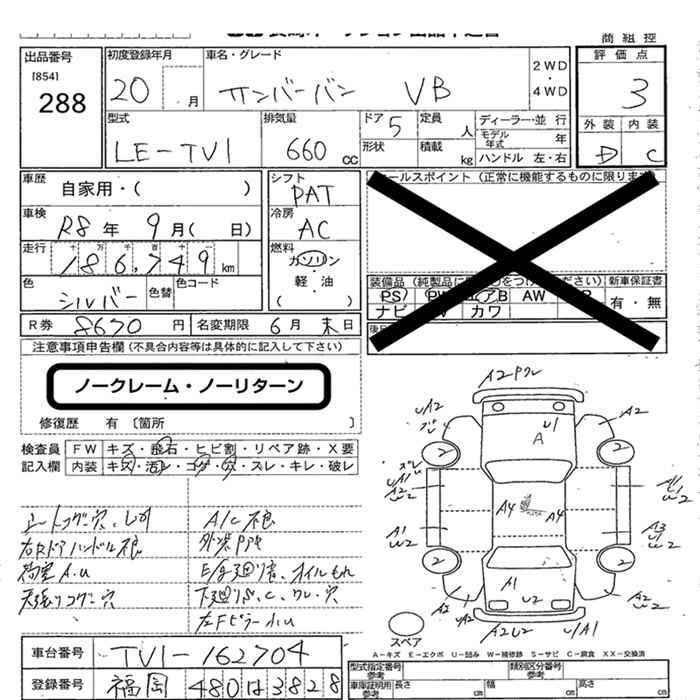 商組控
出品番号
[854]
288
初度登録年月
20
月
車名・グレード
サンバーバン VB
2WD
・
4WD
評価点
3
外装 内装
D C
型式
LE-TV1
排気量
660 cc
ドア 5
形状
定員 人
積載 kg
ディーラー・並行
モデル年式 年
ハンドル 左・右
車歴
自家用・( )
車検
R8年 9月( 日)
走行
186,749 km
色
シルバー
色替
色コード
シフト
PAT
冷房
AC
燃料
ガソリン
・
軽・油
( )
セールスポイント(正常に機能するものに限ります)
新車保証書
有・無
PS
エアB AW
ナビ
カワ
R券 8670 円
名変期限 6月 末日
注意事項申告欄(不具合内容等は具体的に記入して下さい)
ノークレーム・ノーリターン
修復歴 有 〔箇所 〕
検査員記入欄
FW キズ・飛石・ヒビ割・リペア跡・X要
内装 キズ・汚レ・コゲ・穴・スレ・キレ・破レ
シートコゲ穴、
右Rドアハンドル
荷室A.U
天張りコゲ穴
A/C不良
外装
オイルもれ
左Fピラー小U
A2
U1
A
2
2
A4
A4
A1
U2
A3
U2
2
2
A1
U2
U2
A2
A2
U2
A2U2
U1A1
スペア
A-キズ E-エクボ U-凹み W-補修跡 S-サビ C-腐食 XX-交換済
車台番号
TV1-162704
登録番号
福岡 480 は 3828
型式指定番号
参考
類別区分番号
参考
車庫証明用
参考
長さ cm
幅 cm
高さ cm